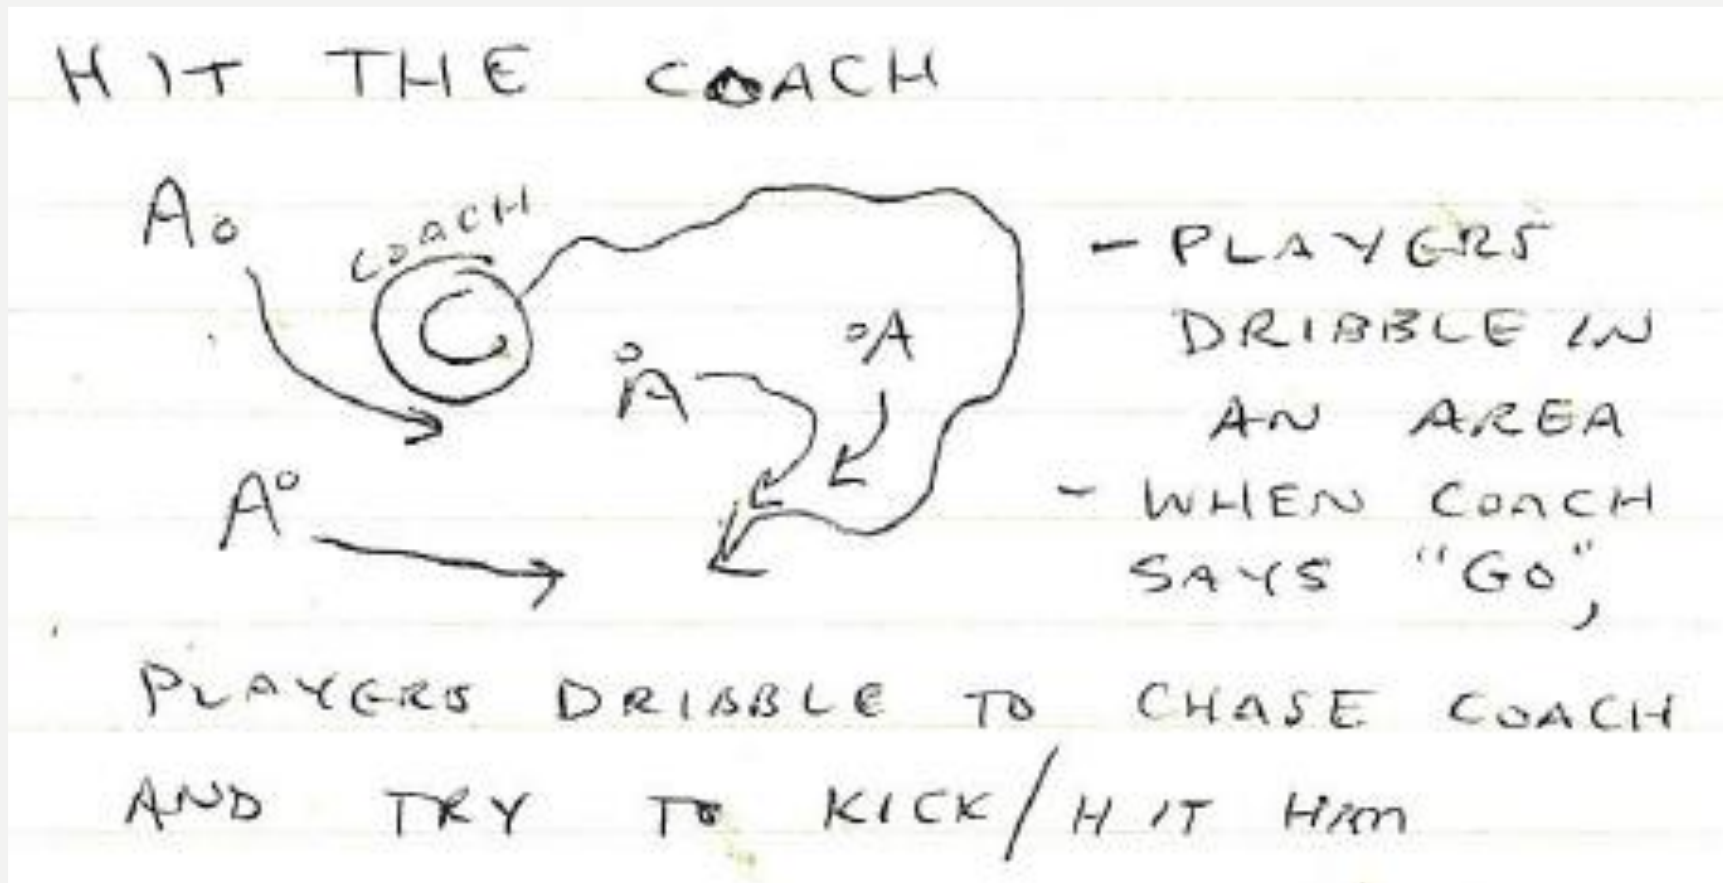 HIT THE COACH
A
COACH
C
A
A
A
- PLAYERS
DRIBBLE IN
AN AREA
- WHEN COACH
SAYS "GO",
PLAYERS DRIBBLE TO CHASE COACH
AND TRY TO KICK/HIT HIM